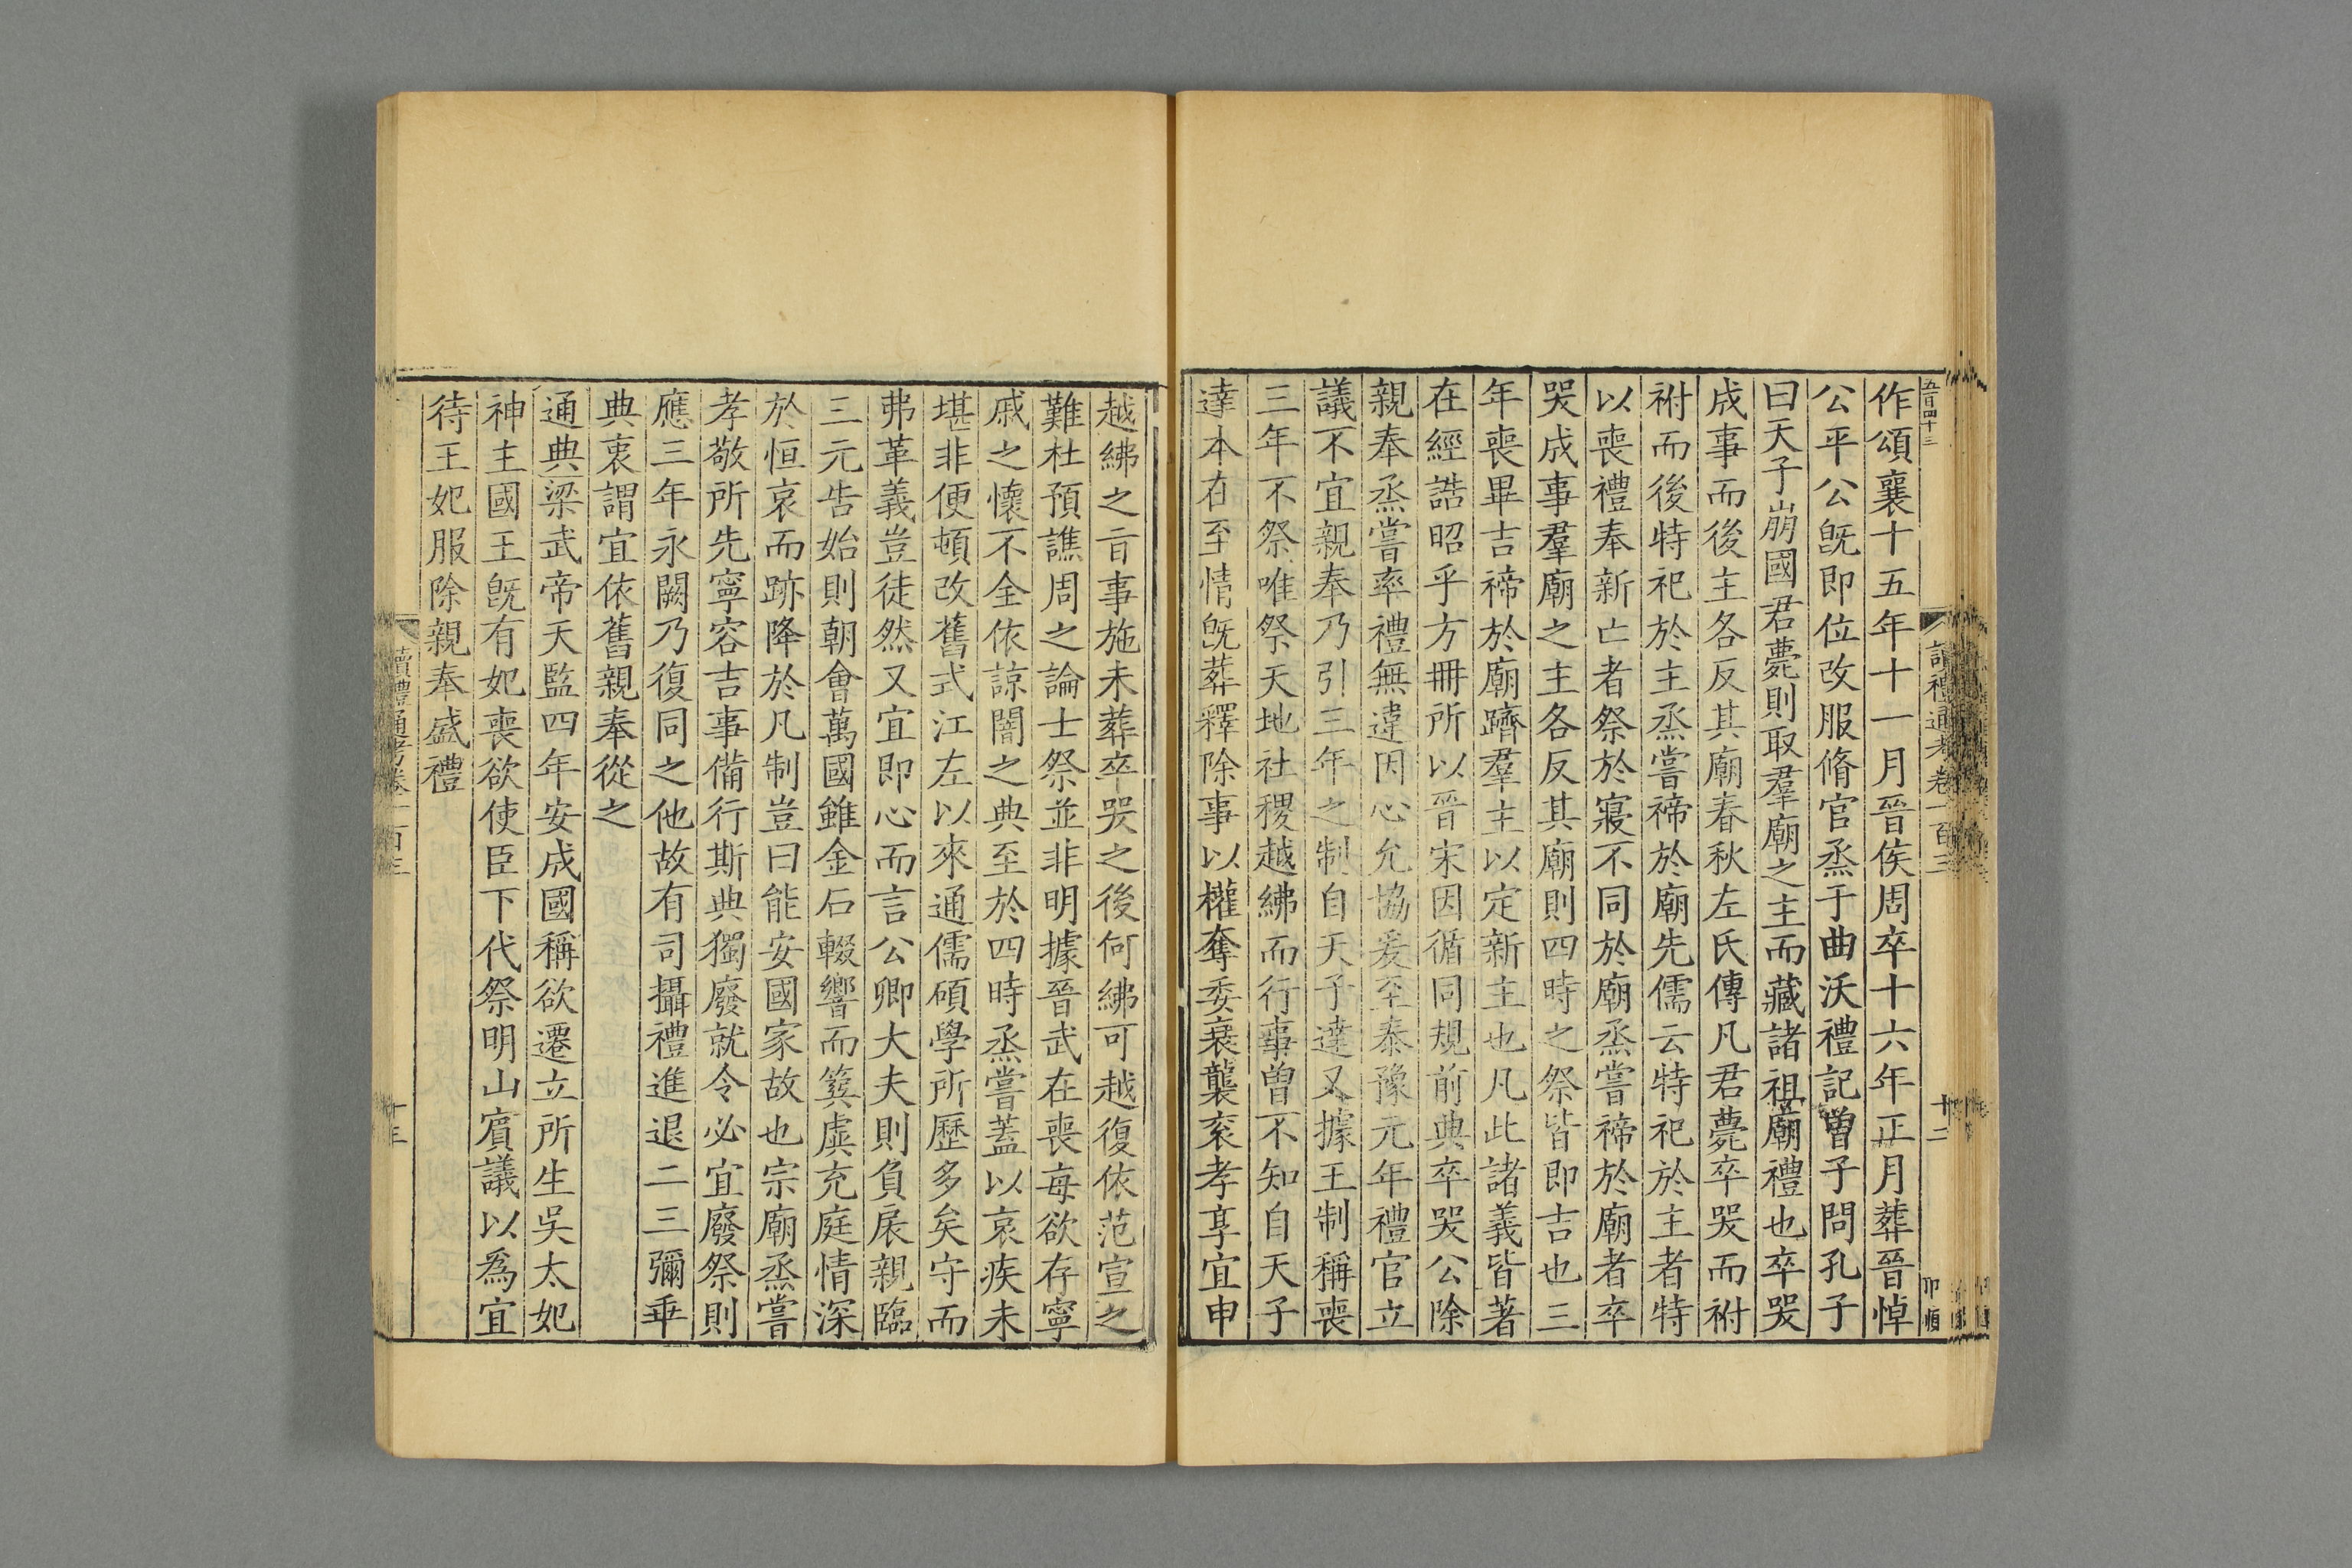 五百四十三
讀禮通考卷一百三
十二
作頌襄十五年十一月晉侯周卒十六年正月葬晉悼
公平公旣即位改服脩官烝于曲沃禮記曾子問孔子
曰天子崩國君薨則取羣廟之主而藏諸祖廟禮也卒哭
成事而後主各反其廟春秋左氏傳凡君薨卒哭而祔
祔而後特祀於主烝嘗禘於廟先儒云特祀於主者特
以喪禮奉新亡者祭於寢不同於廟烝嘗禘於廟者卒
哭成事羣廟之主各反其廟則四時之祭皆即吉也三
年喪畢吉禘於廟躋羣主以定新主也凡此諸義皆著
在經誥昭乎方冊所以晉宋因循同規前典卒哭公除
親奉烝嘗率禮無違因心允協爰至泰豫元年禮官立
議不宜親奉乃引三年之制自天子達又據王制稱喪
三年不祭唯祭天地社稷越紼而行事曾不知自天子
達本在至情旣葬釋除事以權奪委衰襲衮孝享宜申
越紼之旨事施未葬卒哭之後何紼可越復依范宣之
難杜預譙周之論士祭並非明據晉武在喪每欲存寧
戚之懷不全依諒闇之典至於四時烝嘗蓋以哀疾未
堪非便頓改舊式江左以來通儒碩學所歷多矣守而
弗革義豈徒然又宜即心而言公卿大夫則負扆親臨
三元告始則朝會萬國雖金石輟響而簨虡充庭情深
於恒哀而跡降於凡制豈曰能安國家故也宗廟烝嘗
孝敬所先寧容吉事備行斯典獨廢就令必宜廢祭則
應三年永闕乃復同之他故有司攝禮進退二三彌乖
典衷謂宜依舊親奉從之
通典梁武帝天監四年安成國稱欲遷立所生吳太妃
神主國王旣有妃喪欲使臣下代祭明山賓議以爲宜
待王妃服除親奉盛禮
讀禮通考卷一百三
十三